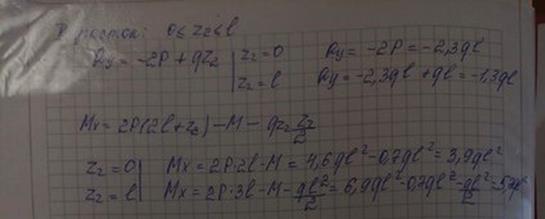 II участок: 0 ≤ z₂ ≤ l
Qy = -2P + qz₂ | z₂ = 0   Qy = -2P = -2,3ql
z₂ = l   Qy = -2,3ql + ql = -1,3ql
Mx = 2P(2l + z₂) - M - qz₂ z₂/2
z₂ = 0 | Mx = 2P·2l - M = 4,6ql² - 0,7ql² = 3,9ql²
z₂ = l | Mx = 2P·3l - M - ql²/2 = 6,9ql² - 0,7ql² - ql²/2 =